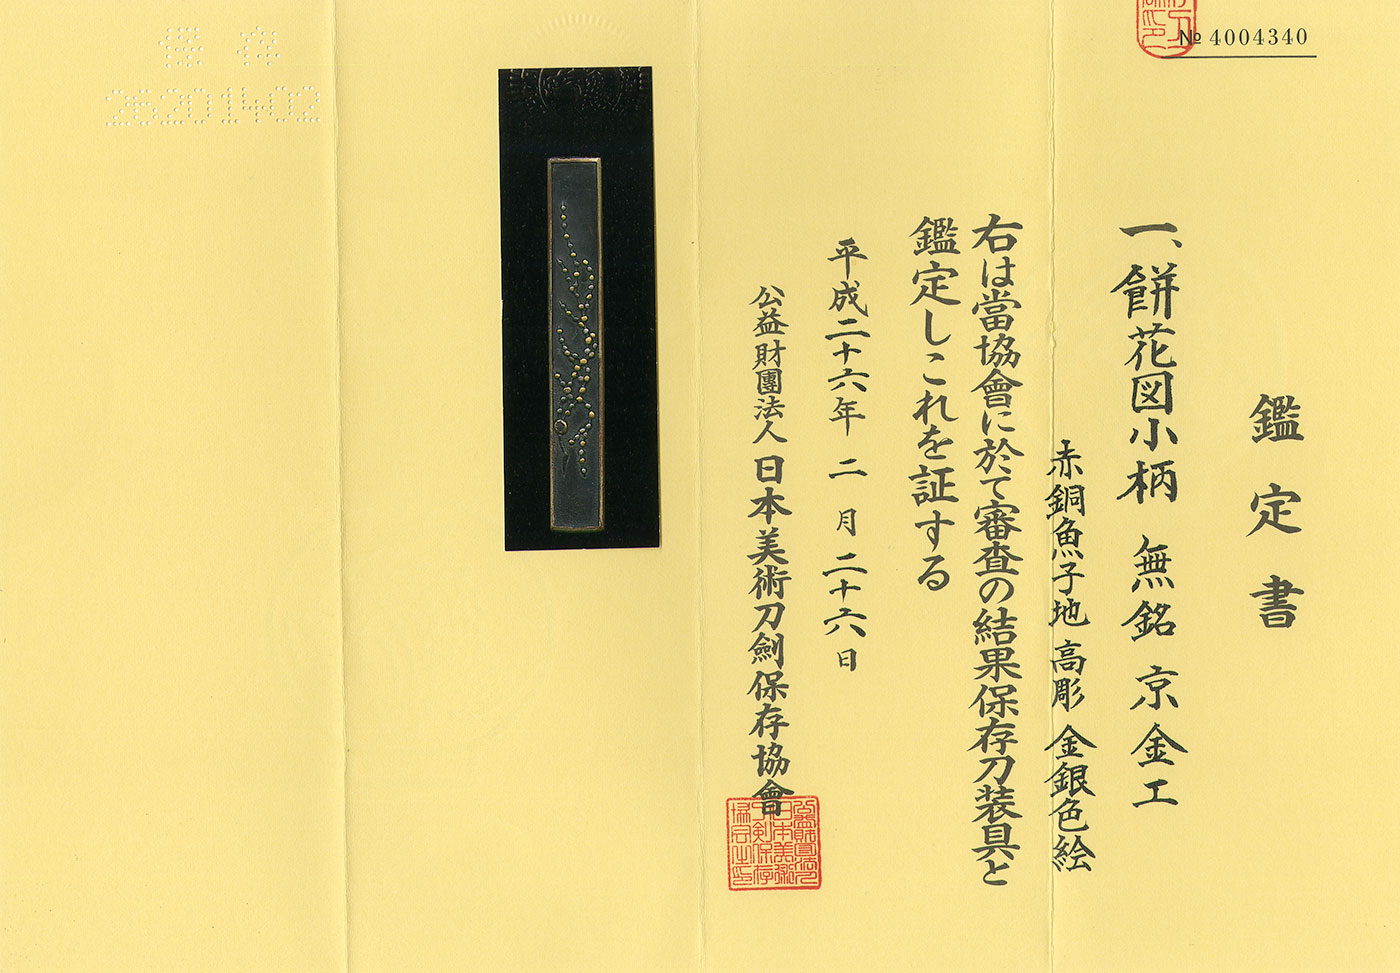 № 4004340
鑑定書
一、餅花図小柄 無銘 京金工
赤銅魚子地 高彫 金銀色絵
右は當協會に於て審査の結果保存刀装具と
鑑定しこれを証する
平成二十六年 二 月 二十六日
公益財團法人 日本美術刀劍保存協會
保存
26201402